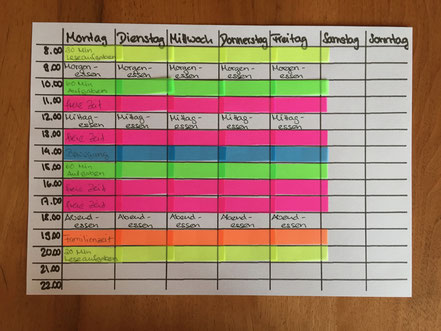 Montag Dienstag Mittwoch Donnerstag Freitag Samstag Sonntag
8.00 30 Min
Leseaufgaben
9.00 Morgen- Morgen- Morgen- Morgen- Morgen-
essen essen essen essen essen
10.00 60 Min
Aufgaben
11.00 Freie Zeit
12.00 Mittag- Mittag- Mittag- Mittag- Mittag-
essen essen essen essen essen
13.00 Freie Zeit
14.00
15.00 60 Min
Aufgaben
16.00 Freie Zeit
17.00 Freie Zeit
18.00 Abend- Abend- Abend- Abend- Abend-
essen essen essen essen essen
19.00 Familienzeit
20.00 30 Min
Leseaufgaben
21.00
22.00